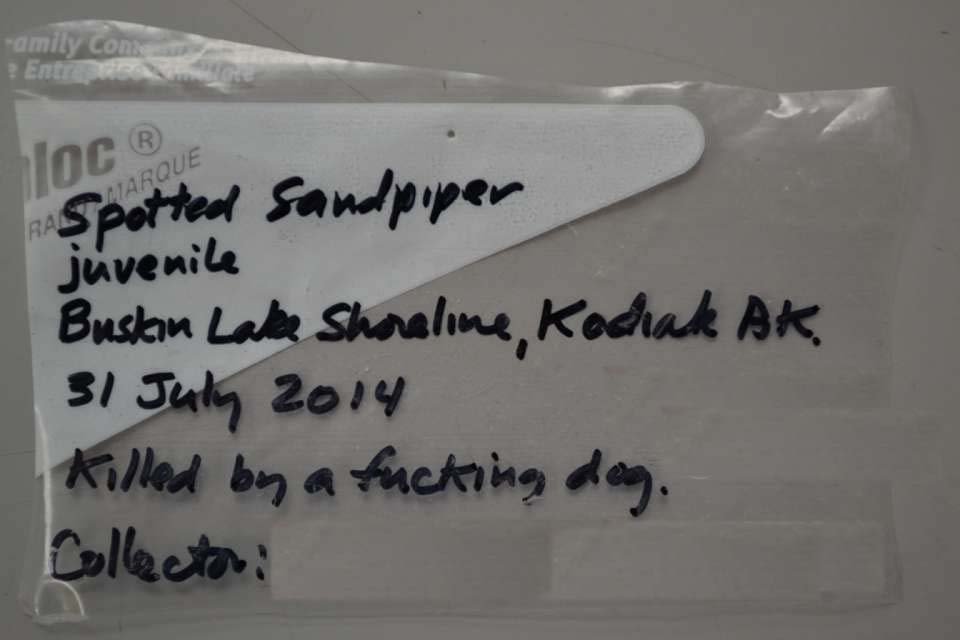 amily Com
e Entrep
loc ®
MARQUE
Spotted Sandpiper
juvenile
Buskin Lake Shoreline, Kodiak AK.
31 July 2014
Killed by a fucking dog.
Collector: